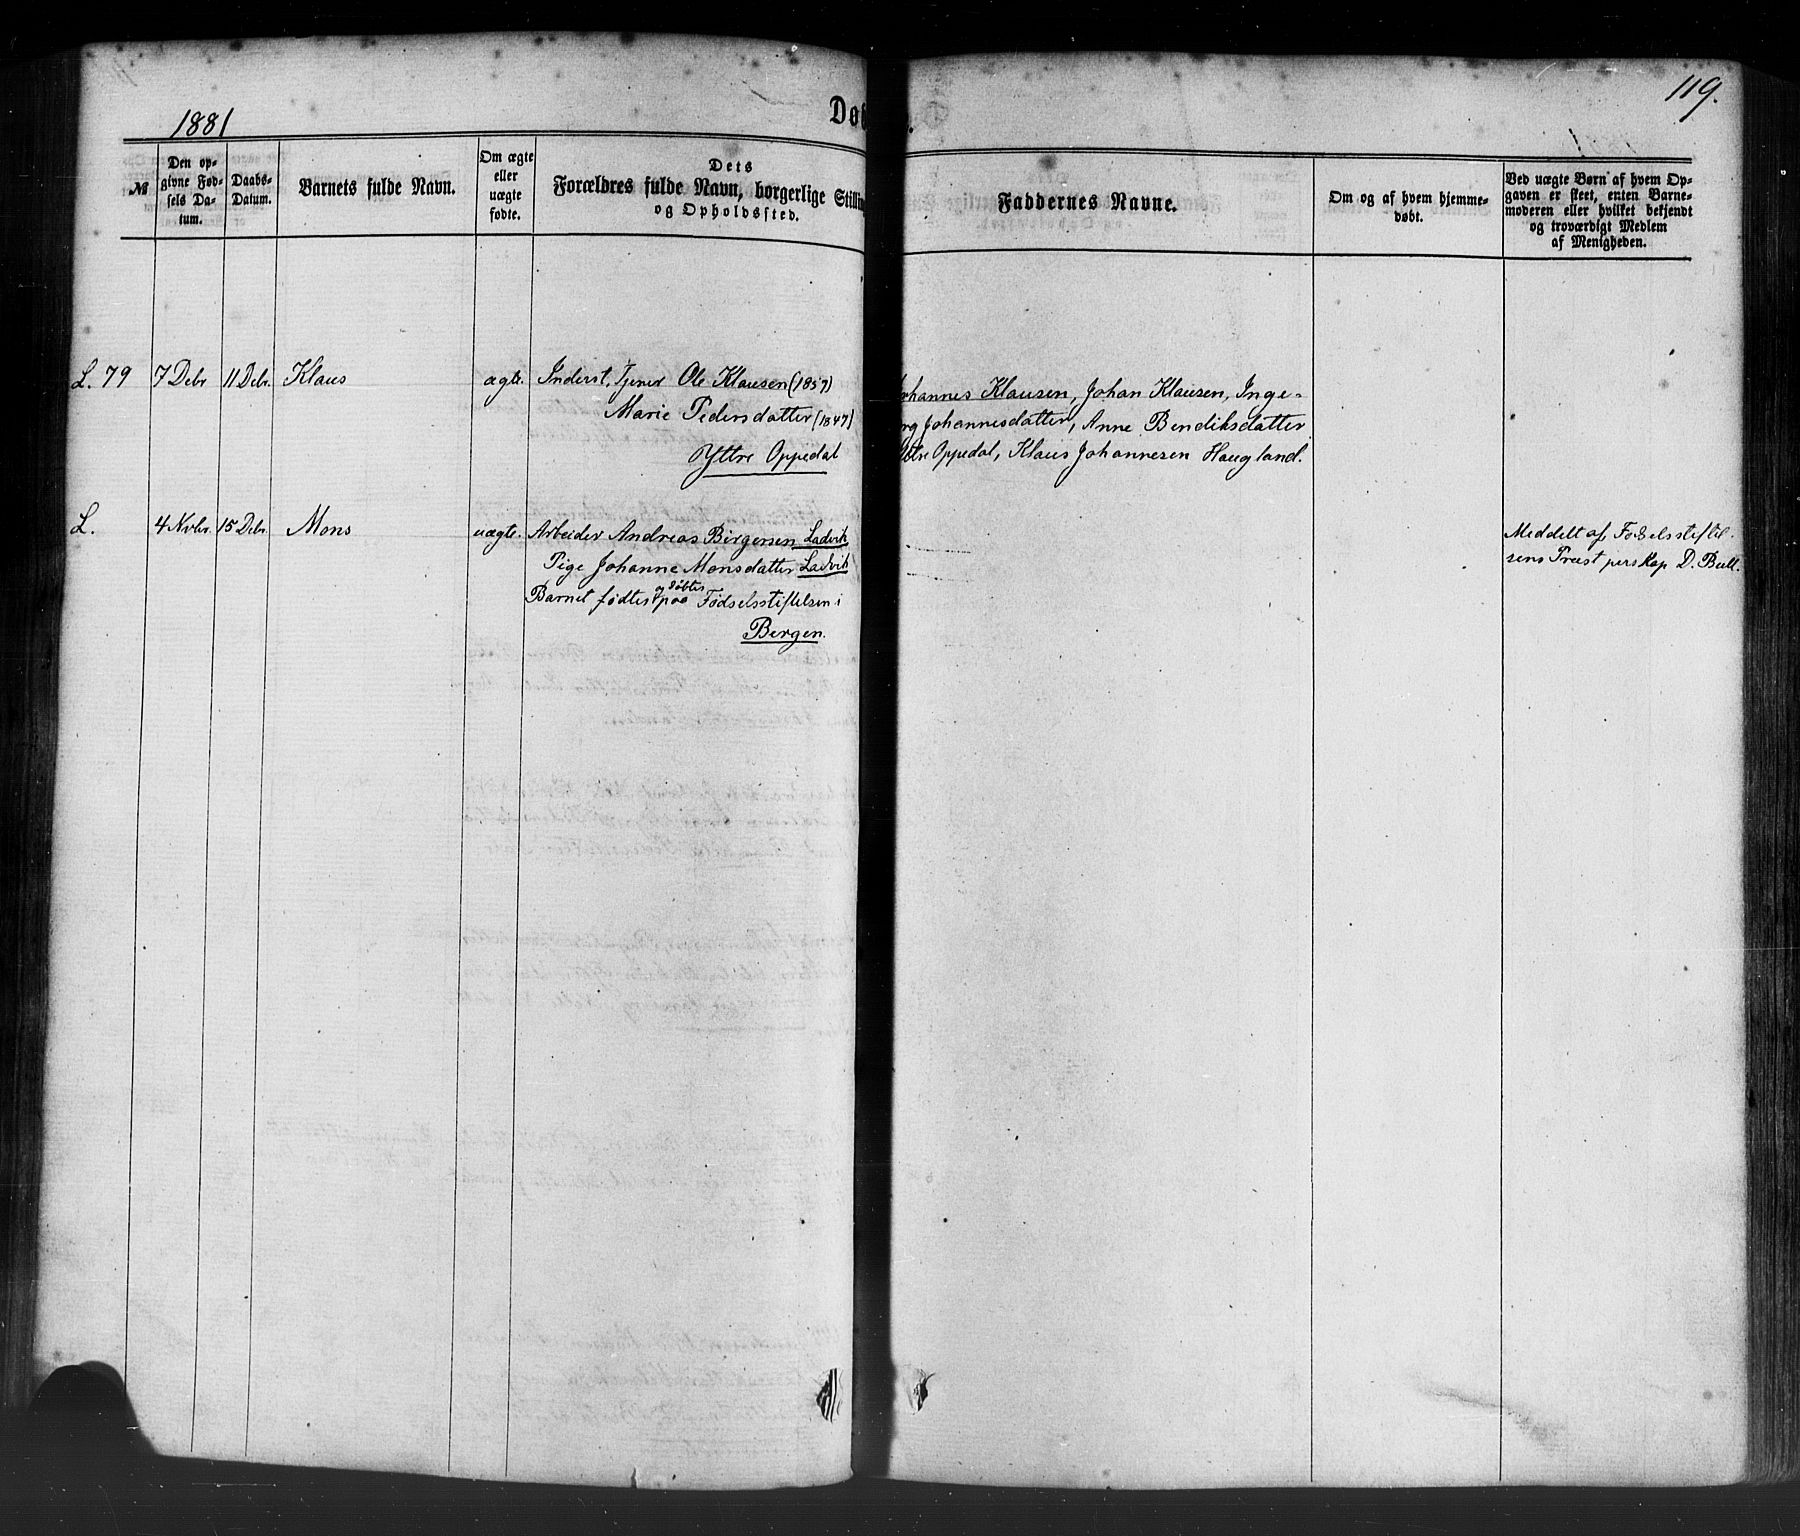 1881
Dø
119.
№
Den op-
givne Fød-
sels Da-
tum.
Daabs-
Datum.
Barnets fulde Navn.
Om ægte
eller
uægte
fødte.
Dets
Forældres fulde Navn, borgerlige Stillin
og Opholdssted.
Faddernes Navne.
Om og af hvem hjemme-
døbt.
Ved uægte Børn af hvem Op-
gaven er skeet, enten Barne-
moderen eller hvilket bekjendt
og troværdigt Medlem
af Menigheden.
L. 79 7 Debr 11 Debr. Klaus ægte. Inderst, Tjener Ole Klausen (1857)
Marie Pedersdatter (1847)
Yttre Oppedal
hannes Klausen, Johan Klausen, Inge-
rg Johannesdatter, Anne Bendiksdatter
tre Oppedal, Klaus Johannesen Haugland.
L. 4 Nvbr. 15 Debr. Mons uægte. Arbeider Andreas Birgersen Ladvik
Pige Johanne Monsdatter Ladvik
Barnet fødtes og døbtes paa Fødselsstiftelsen i
Bergen.
Meddelt af Fødselsstiftel-
sens Præst perskap D. Bull.